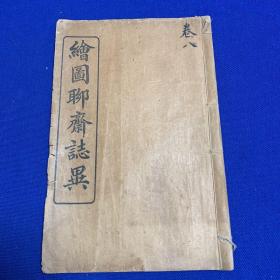 卷八
繪圖聊齋誌異